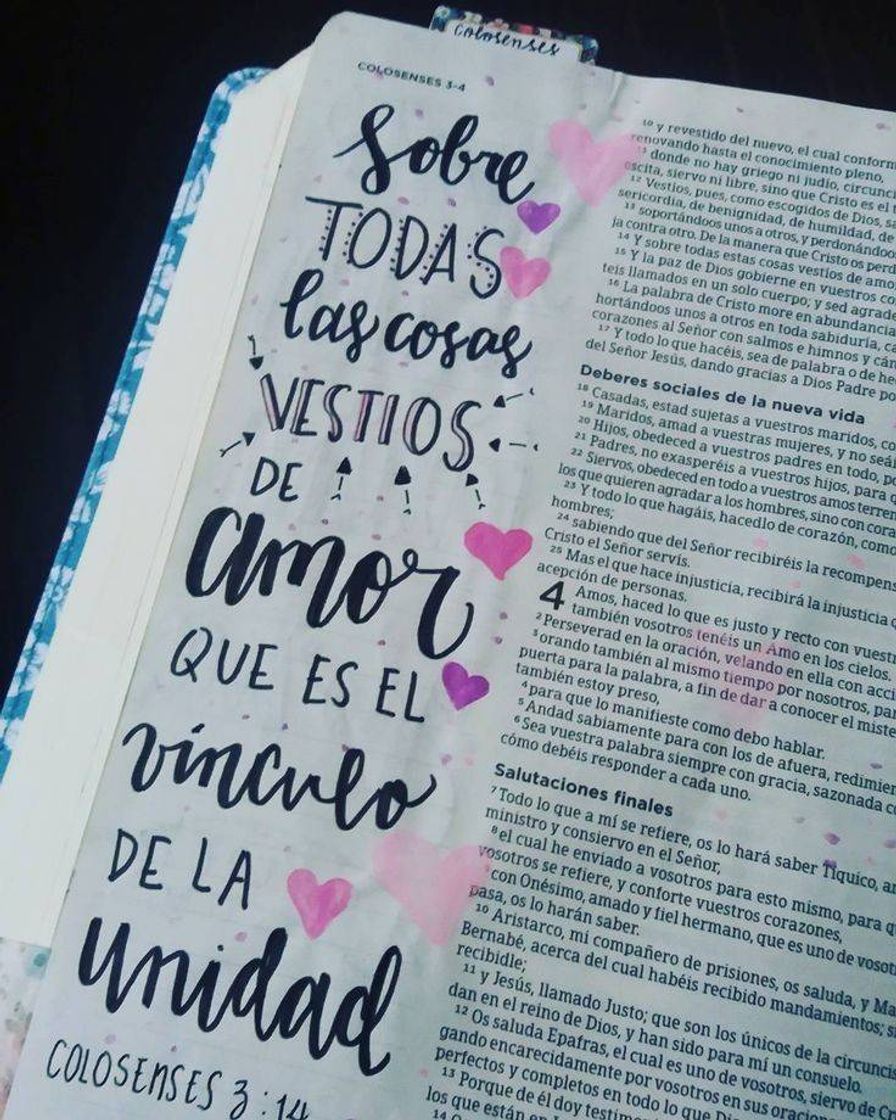 colosenses
COLOSENSES 3-4
Sobre
TODAS
las cosas
VESTIOS
DE
amor
QUE ES EL
vínculo
DE LA
unidad
COLOSENSES 3:14
10 y revestido del nuevo, el cual conform
renovando hasta el conocimiento pleno,
11 donde no hay griego ni judío, circun
escita, siervo ni libre, sino que Cristo es el t
12 Vestíos, pues, como escogidos de Dios, sa
sericordia, de benignidad, de humildad, de
13 soportándoos unos a otros, y perdonándoo
ja contra otro. De la manera que Cristo os per
14 Y sobre todas estas cosas vestíos de amo
15 Y la paz de Dios gobierne en vuestros co
teis llamados en un solo cuerpo; y sed agrade
16 La palabra de Cristo more en abundancia
hortándoos unos a otros en toda sabiduría, ca
corazones al Señor con salmos e himnos y cán
17 Y todo lo que hacéis, sea de palabra o de he
del Señor Jesús, dando gracias a Dios Padre po
Deberes sociales de la nueva vida
18 Casadas, estad sujetas a vuestros maridos, co
19 Maridos, amad a vuestras mujeres, y no seái
20 Hijos, obedeced a vuestros padres en todo, po
21 Padres, no exasperéis a vuestros hijos, para q
22 Siervos, obedeced en todo a vuestros amos terren
los que quieren agradar a los hombres, sino con cora
23 Y todo lo que hagáis, hacedlo de corazón, como
hombres;
24 sabiendo que del Señor recibiréis la recompen
Cristo el Señor servís.
25 Mas el que hace injusticia, recibirá la injusticia q
acepción de personas.
4 Amos, haced lo que es justo y recto con vuest
también vosotros tenéis un Amo en los cielos.
2 Perseverad en la oración, velando en ella con acci
3 orando también al mismo tiempo por nosotros, par
puerta para la palabra, a fin de dar a conocer el miste
también estoy preso,
4 para que lo manifieste como debo hablar.
5 Andad sabiamente para con los de afuera, redimien
6 Sea vuestra palabra siempre con gracia, sazonada co
cómo debéis responder a cada uno.
Salutaciones finales
7 Todo lo que a mí se refiere, os lo hará saber Tíquico, a
ministro y consiervo en el Señor,
8 el cual he enviado a vosotros para esto mismo, para q
vosotros se refiere, y conforte vuestros corazones,
con Onésimo, amado y fiel hermano, que es uno de vosot
pasa, os lo harán saber.
10 Aristarco, mi compañero de prisiones, os saluda, y Ma
Bernabé, acerca del cual habéis recibido mandamientos; s
recibidle;
11 y Jesús, llamado Justo; que son los únicos de la circunci
dan en el reino de Dios, y han sido para mí un consuelo.
12 Os saluda Epafras, el cual es uno de vosotros, siervo de
gando encarecidamente por vosotros en sus oracio
perfectos y completos en todo lo que Di
13 Porque de él doy testimo
los que están en
14